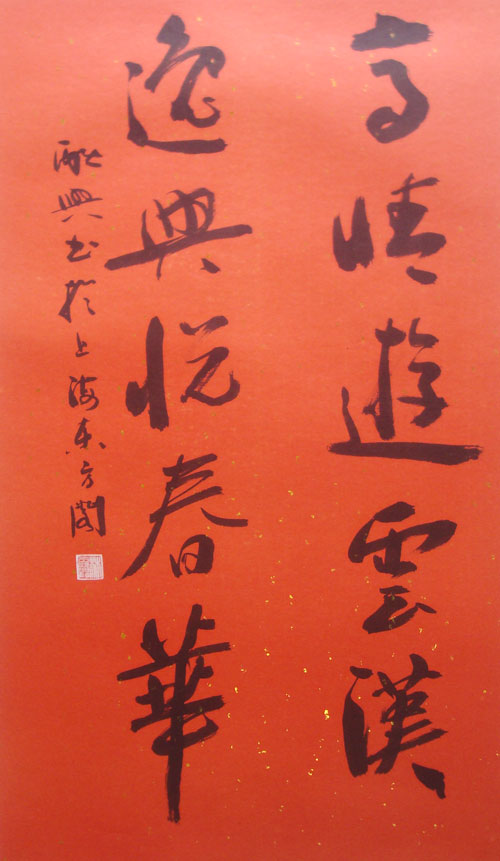 高情遊雲漢
逸興悦春華
興书於上海東方閣